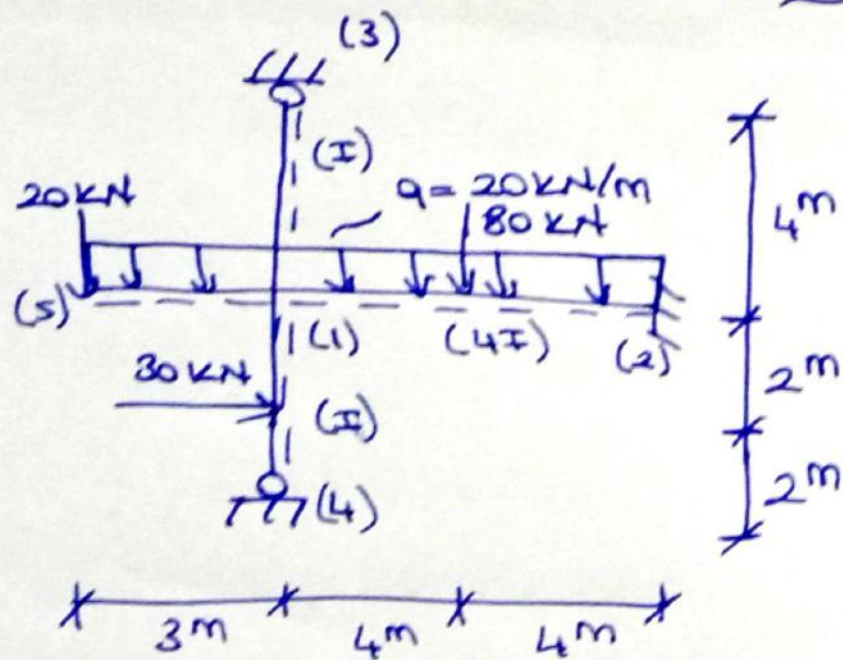 (3)
(I)
20 KN
q = 20 KN/m
80 KN
4 m
(5)
(1)
(4I)
(2)
30 KN
(I)
2 m
(4)
2 m
3 m
4 m
4 m